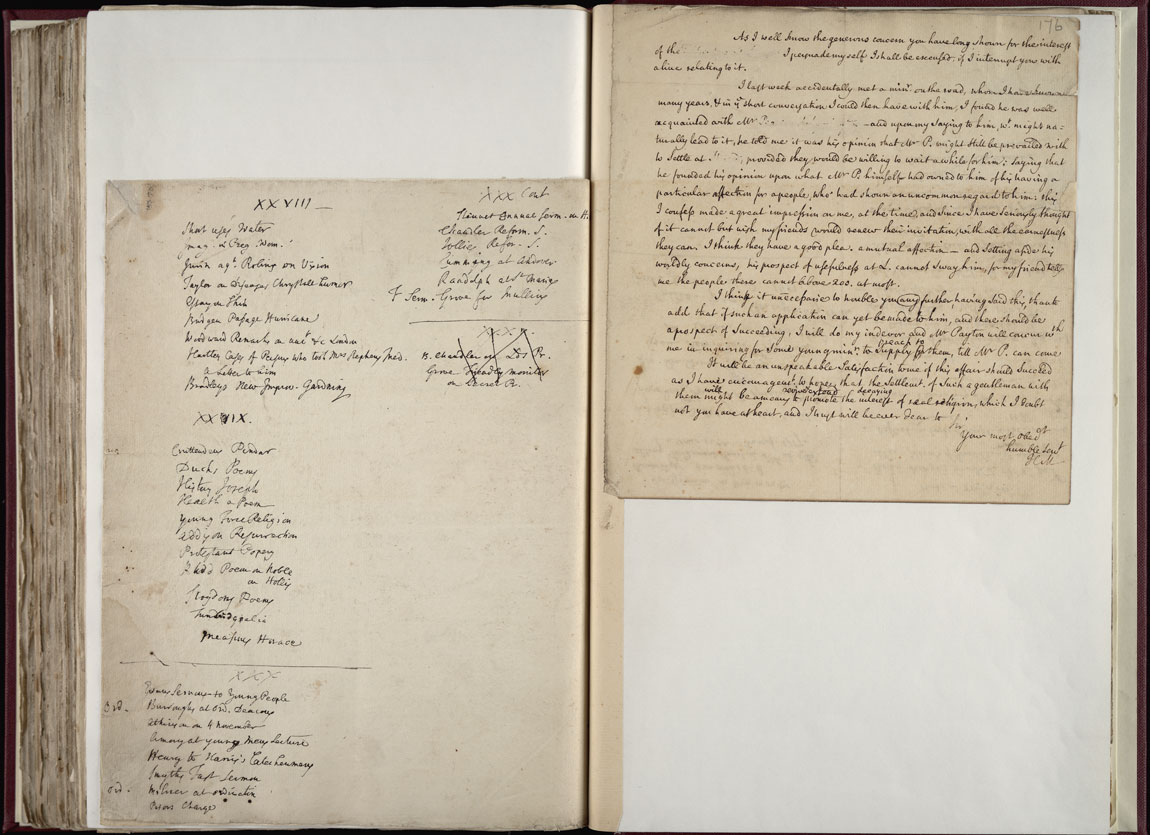 XXVIII
Short
on Vision
Taylor on Diseases Chrystall
Bridgen Passage Hurricane
Woodward Remarks on &c London
Hartley Cases of Persons who took Mrs Stephens Med.
a Letter to him
Bradleys New Improv. Gardening
XXIX.
Crittenden Pindar
Ducks Poems
History Joseph
Health a Poem
Young Force Religion
Addison Resurrection
Protestant Popery
Poem on Noble
on Hollis
Poems
Horace
XXX
Sermons to Young People
Ord. Burroughs at Ord. Deacons
Atkinson on 4 November
Amory at young Mens Lecture
Henry to Harris's Catechumens
Smyths Fast Sermon
Ord. Milner at ordination
Charge
XXX Cont
Annuel Serm. on
Chandler Reform. S.
Jollies Refor. S.
Cumming at Andover
Randolph at St Maries
F Serm. Grove for Mullins
XXX
B. Chandler on Lds Pr.
Grove Friendly monitor
on Secret Pr.
176
As I well know the generous concern you have long shown for the interest
of the I persuade my self I shall be excused, if I interrupt you with
a line relating to it.
I last week accidentally met a minr. on the road, whom I have known
many years, & in ye short conversation I could then have with him, I found he was well
acquainted with Mr — and upon my saying to him, wt. might na=
turally lead to it, he told me it was his opinion that Mr P. might still be prevailed with
to settle at provided they would be willing to wait a while for him; saying that
he founded his opinion upon what Mr P. himself had owned to him of his having a
particular affection for a people, who had shown an uncommon regard to him: this
I confess made a great impression on me, at the time, and since I have seriously thought
of it cannot but wish my friends would renew their invitation, with all the earnestness
they can. I think they have a good plea. a mutual affection — and setting aside his
worldly concerns, his prospect of usefulness at L. cannot sway him, for my friend tells
me the people there cannot be above 200. at most.
I think it unnecessarie to trouble you any further having said this, than to
add that if such an application can yet be made to him, and there should be
a prospect of succeeding, I will do my indevor and Mr Paxton will concur with
me in inquiring for some young minr. to supply preach to for them, till Mr P. can come
It will be an unspeakable satisfaction to me if this affair should succeed
as I have encouragemt. to hope, that the settlemt. of such a gentleman with
them will might be a means to revive & extend promote the decaying interest of real religion, which I doubt
not you have at heart, and I trust will be ever dear to
Sir
Your most obedt
humble Servt